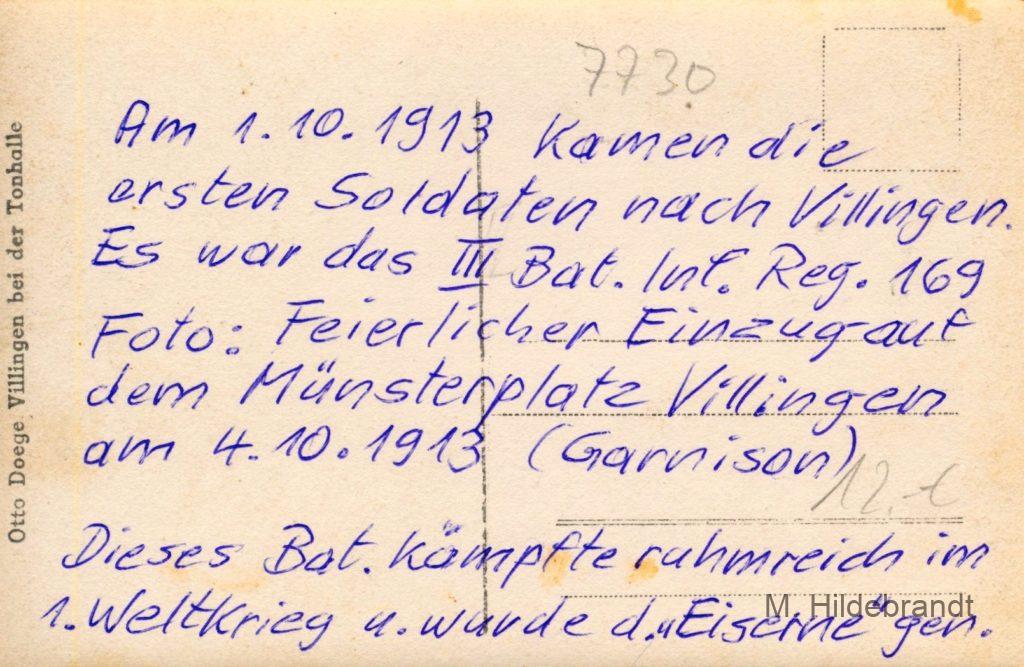 7730
Am 1.10.1913 kamen die
ersten Soldaten nach Villingen.
Es war das III Bat. Inf. Reg. 169
Foto: Feierlicher Einzug auf
dem Münsterplatz Villingen
am 4.10.1913 (Garnison)
12.-€
Dieses Bat. kämpfte ruhmreich im
1. Weltkrieg u. wurde d. "Eiserne" gen.
M. Hildebrandt
Otto Doege Villingen bei der Tonhalle